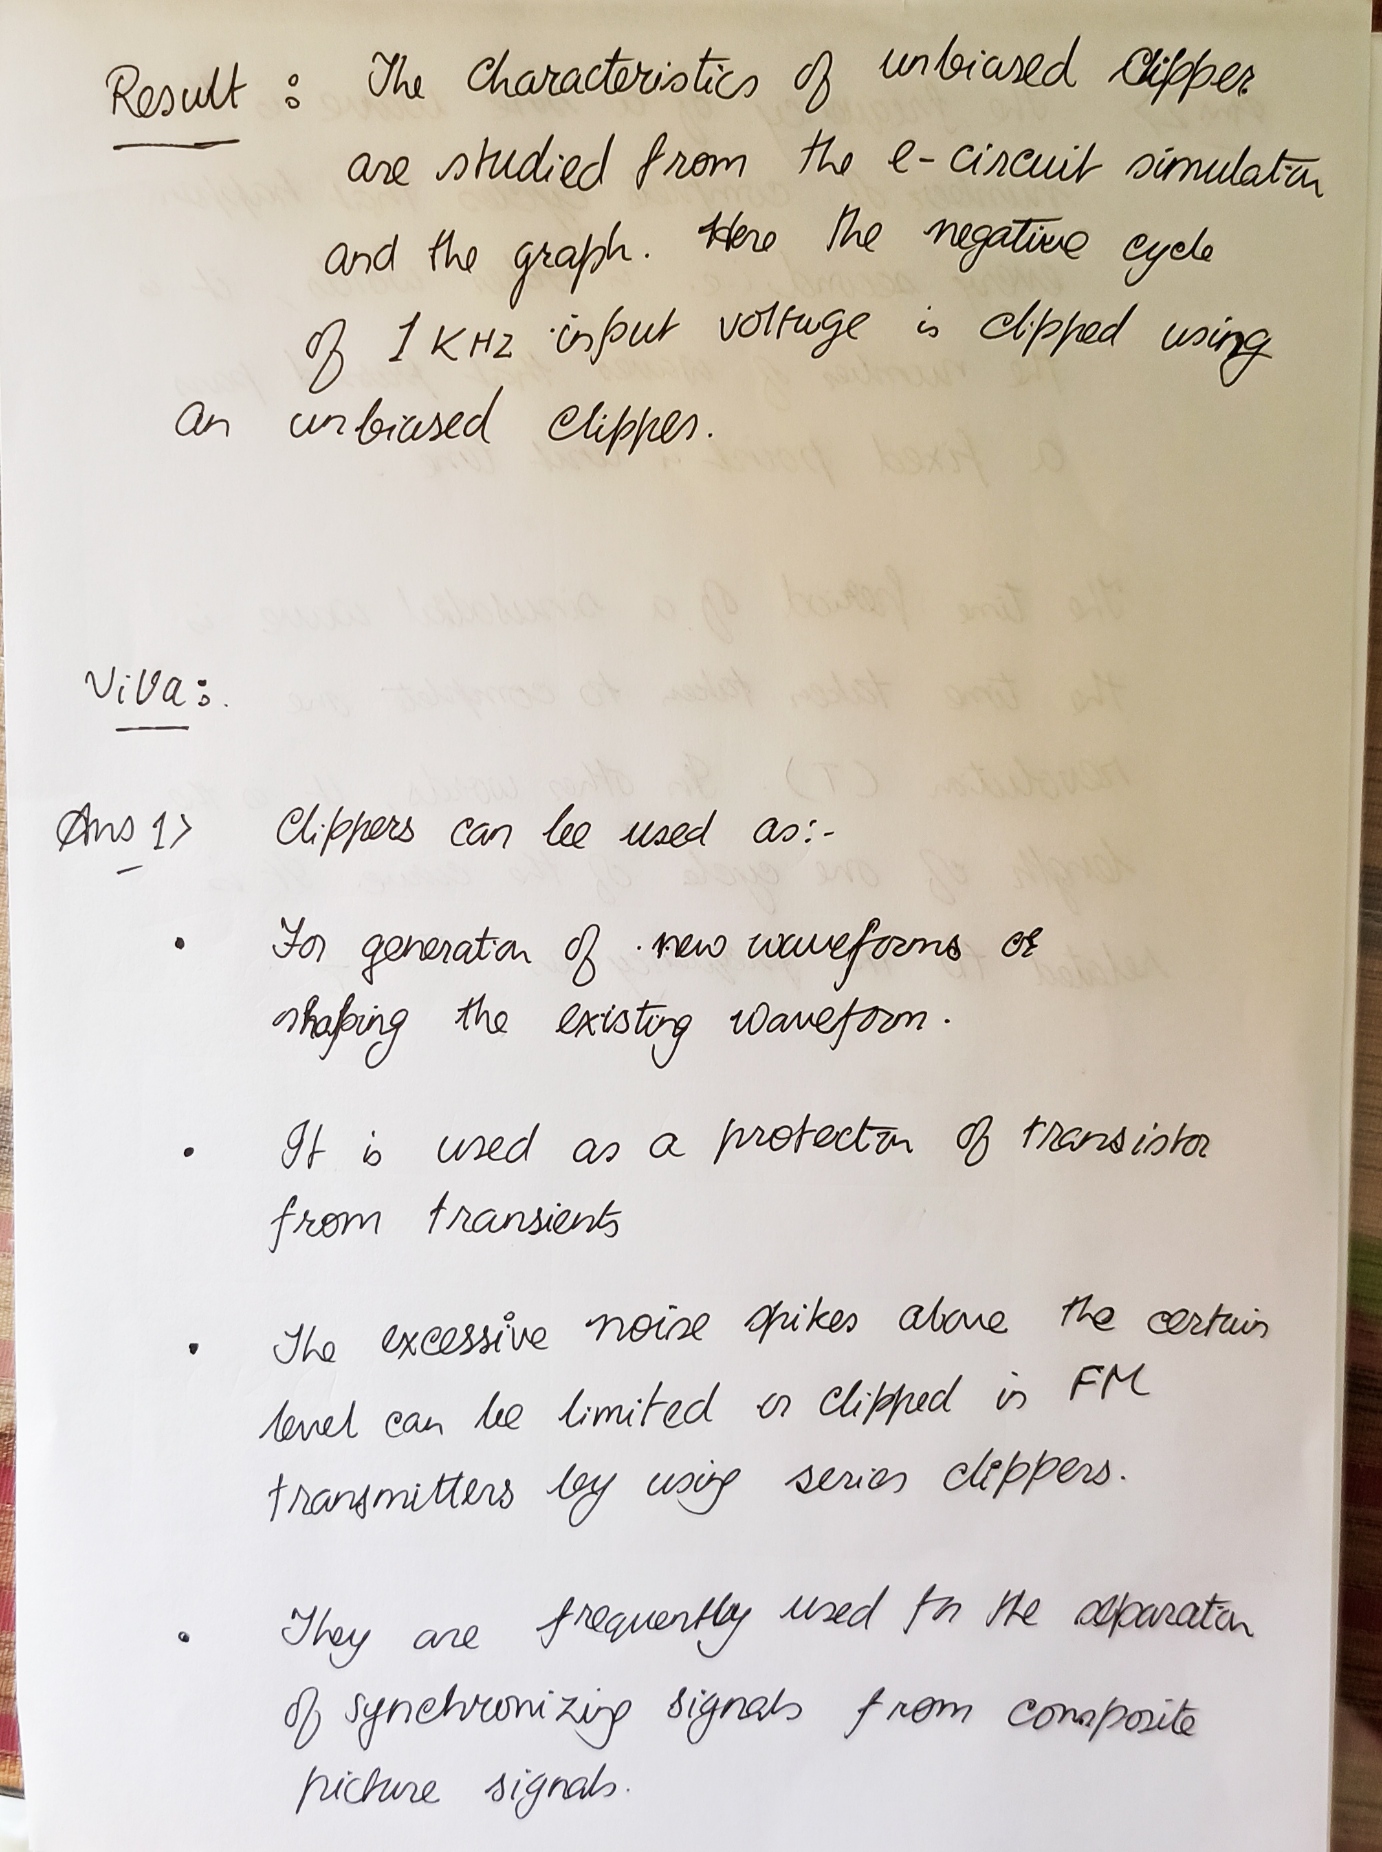 Result : The characteristics of unbiased clipper
are studied from the e-circuit simulation
and the graph. Here the negative cycle
of 1 KHz input voltage is clipped using
an unbiased clipper.
Viva:.
Ans 1> Clippers can be used as:-
• For generation of new waveforms or
shaping the existing waveform.
• It is used as a protection of transistor
from transients
• The excessive noise spikes above the certain
level can be limited or clipped in FM
transmitters by using series clippers.
• They are frequently used for the separation
of synchronizing signals from composite
picture signals.